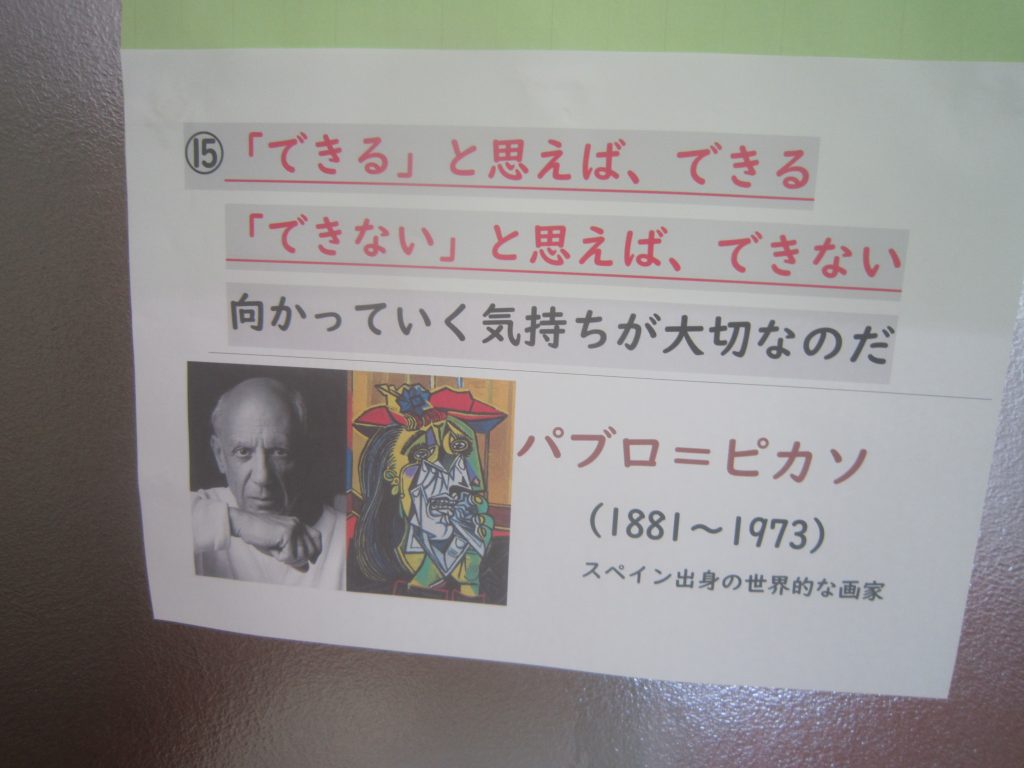 ⑮「できる」と思えば、できる
「できない」と思えば、できない
向かっていく気持ちが大切なのだ
パブロ＝ピカソ
（1881～1973）
スペイン出身の世界的な画家